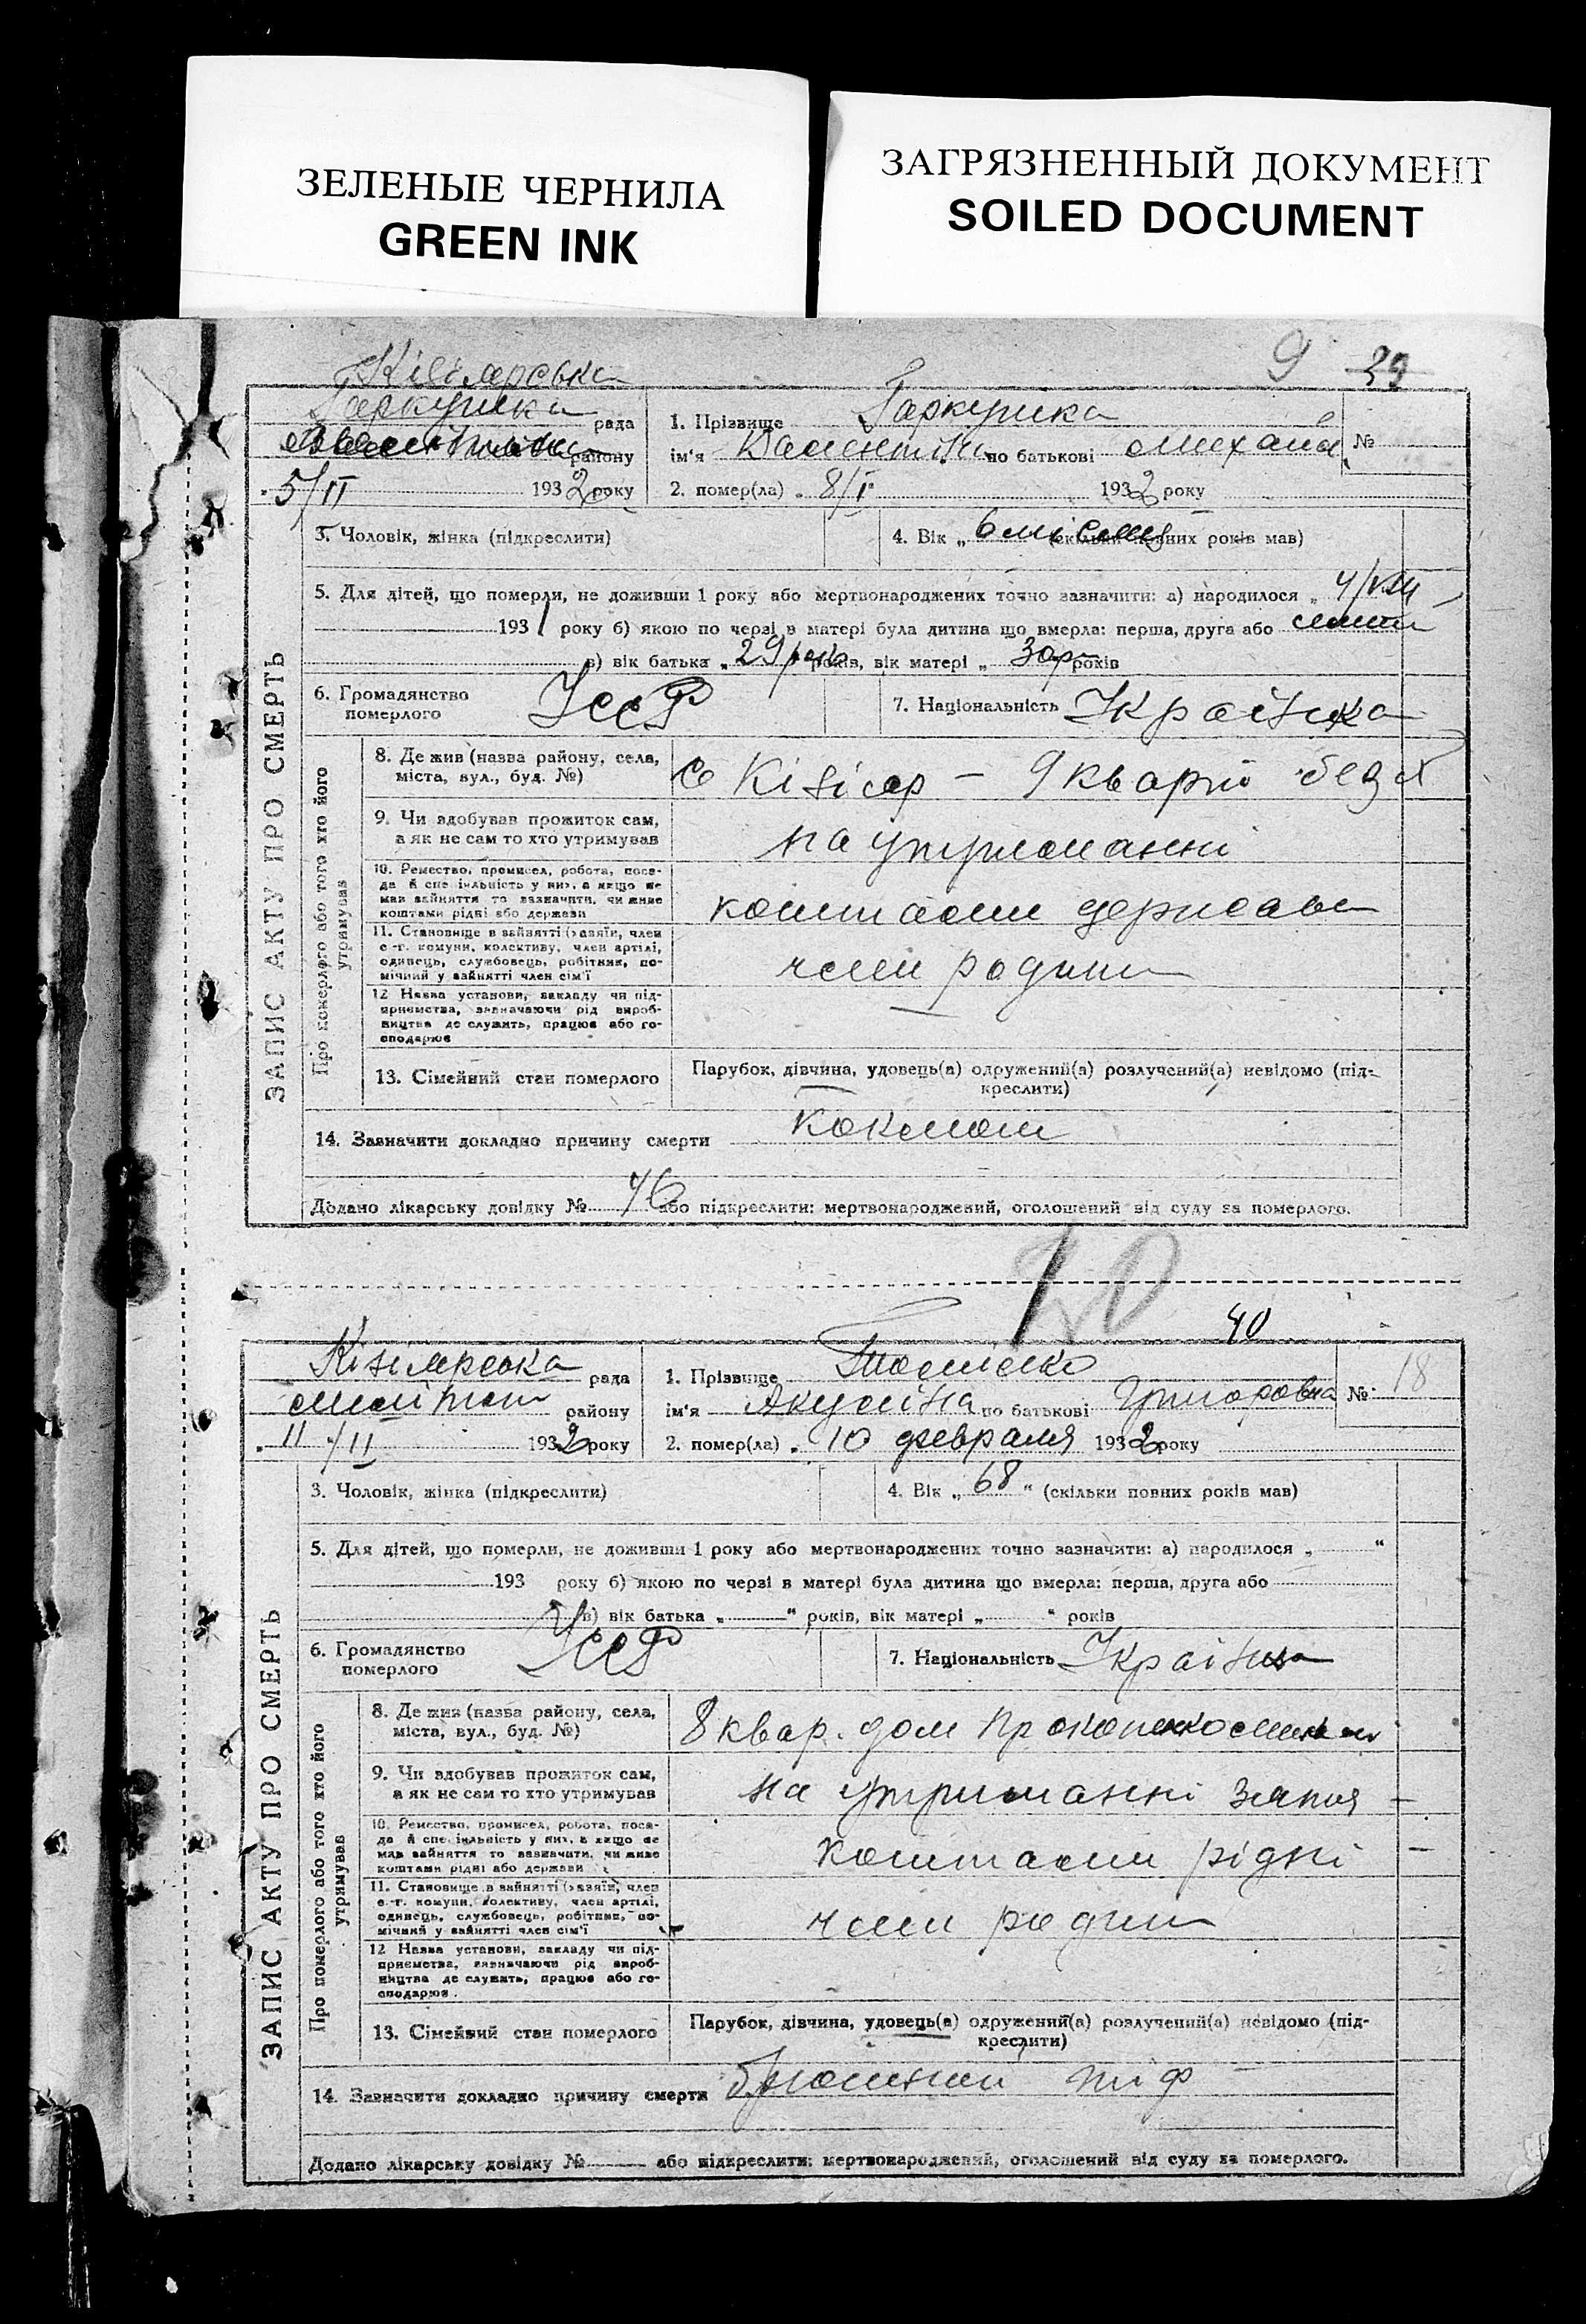 ЗЕЛЕНЫЕ ЧЕРНИЛА
GREEN INK
ЗАГРЯЗНЕННЫЙ ДОКУМЕНТ
SOILED DOCUMENT
9 39
Кізіярська
Гаркушка рада
району
5/II 1932 року
1. Прізвище Гаркушка
ім'я Валентина по батькові
№
2. помер(ла) „ 8/I 1932 року
ЗАПИС АКТУ ПРО СМЕРТЬ
3. Чоловік, жінка (підкреслити)
4. Вік „ 6 місяц (скільки повних років мав)
5. Для дітей, що померли, не доживши 1 року або мертвонароджених точно зазначити: а) народилося „ 4/VIII
1931 року б) якою по черзі в матері була дитина що вмерла: перша, друга або
в) вік батька „ 29 років, вік матері „ 30 років
6. Громадянство
померлого
УССР
7. Національність Українка
Про померлого або того хто його
утримував
8. Де жив (назва району, села,
міста, вул., буд. №)
с Кізіяр – 9 кварт без №
9. Чи здобував прожиток сам,
а як не сам то хто утримував
на утриманні
10. Ремество, промисел, робота, поса-
да й спеціяльність у них, а якщо не
мав зайняття то зазначити, чи живе
коштами рідні або держави
коштами держави
11. Становище в зайнятті (хазяїн, член
с.-г. комуни, колективу, член артілі,
одинець, службовець, робітник, по-
мічний у зайнятті член сім'ї
член родини
12 Назва установи, закладу чи під-
приємства, зазначаючи рід вироб-
ництва де служить, працює або го-
сподарює
—
13. Сімейний стан померлого
Парубок, дівчина, удовець(а) одружений(а) розлучений(а) невідомо (під-
креслити)
14. Зазначити докладно причину смерти Коклюш
Додано лікарську довідку № 46 або підкреслити: мертвонароджений, оголошений від суду за померлого.
10
40
Кізіярська рада
району
„ 11 /II 1932 року
1. Прізвище
ім'я Акуліна по батькові Григоровна
№ 18
2. помер(ла) „ 10 февраля 1932 року
ЗАПИС АКТУ ПРО СМЕРТЬ
3. Чоловік, жінка (підкреслити)
4. Вік „ 68 “ (скільки повних років мав)
5. Для дітей, що померли, не доживши 1 року або мертвонароджених точно зазначити: а) народилося „ “
193 року б) якою по черзі в матері була дитина що вмерла: перша, друга або
в) вік батька „ “ років, вік матері „ “ років
6. Громадянство
померлого
УССР
7. Національність Українка
Про померлого або того хто його
утримував
8. Де жив (назва району, села,
міста, вул., буд. №)
8 квар. дом Прокопенко
9. Чи здобував прожиток сам,
а як не сам то хто утримував
на утриманні зятя –
10. Ремество, промисел, робота, поса-
да й спеціяльність у них, а якщо не
мав зайняття то зазначити, чи живе
коштами рідні або держави
коштами рідні –
11. Становище в зайнятті (хазяїн, член
с.-г. комуни, колективу, член артілі,
одинець, службовець, робітник, по-
мічний у зайнятті член сім'ї
член родини
12 Назва установи, закладу чи під-
приємства, зазначаючи рід вироб-
ництва де служить, працює або го-
сподарює.
13. Сімейний стан померлого
Парубок, дівчина, удовець(а) одружений(а) розлучений(а) невідомо (під-
креслити)
14. Зазначити докладно причину смерти брюшний тиф
Додано лікарську довідку № або підкреслити: мертвонароджений, оголошений від суду за померлого.